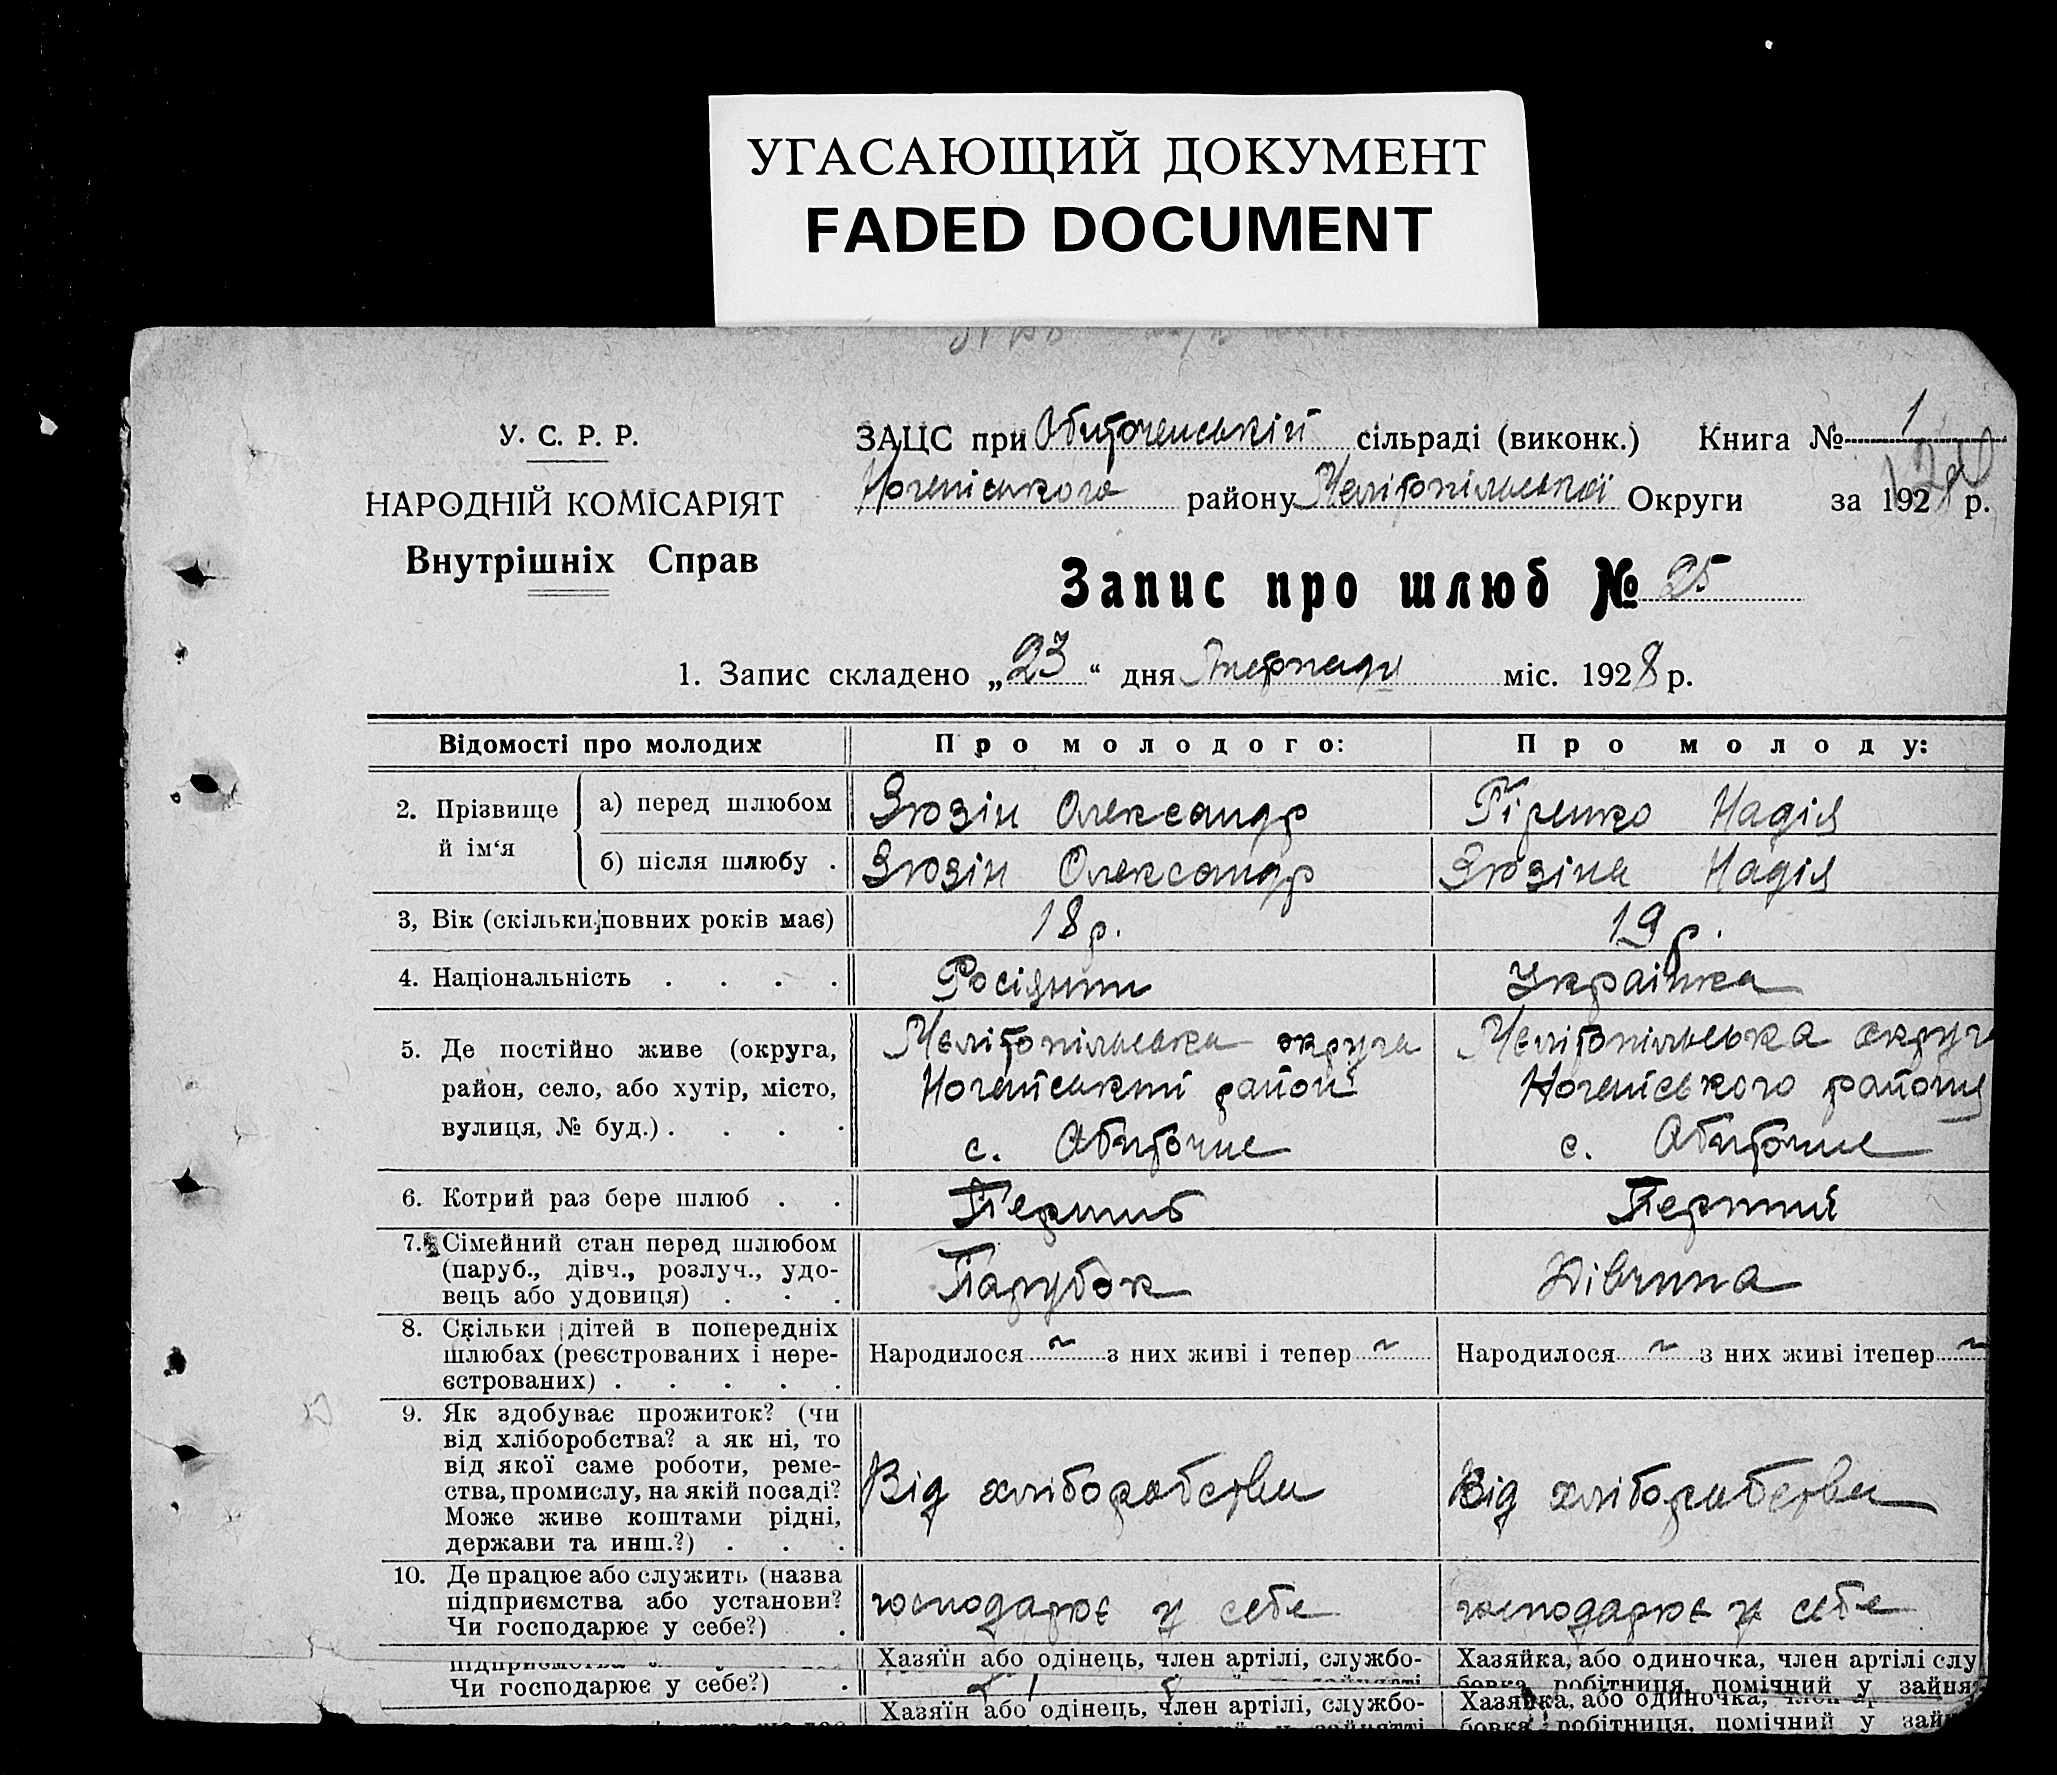 УГАСАЮЩИЙ ДОКУМЕНТ
FADED DOCUMENT
У. С. Р. Р.
НАРОДНІЙ КОМІСАРІЯТ
Внутрішніх Справ
ЗАЦС при Обиточенській сільраді (виконк.) Книга № 1
Ногайського району Мелітопільської Округи за 1928 р.
Запис про шлюб № 25
1. Запис складено „23“ дня міс. 1928 р.
Відомості про молодих
Про молодого:
Про молоду:
2. Прізвище й ім‘я
а) перед шлюбом
Зюзін Олександр
Гіренко Надія
б) після шлюбу .
Зюзін Олександр
Зюзіна Надія
3, Вік (скільки повних років має)
18 р.
19 р.
4. Національність . . . .
Росіянин
Українка
5. Де постійно живе (округа,
район, село, або хутір, місто,
вулиця, № буд.) . . . .
Мелітопільська округа
Ногайський район
с. Обиточне
Мелітопільська округа
Ногайського району
с. Обиточне
6. Котрий раз бере шлюб . .
Перший
7. Сімейний стан перед шлюбом
(паруб., дівч., розлуч., удо-
вець або удовиця) . . .
Парубок
Дівчина
8. Скільки дітей в попередніх
шлюбах (реєстрованих і нере-
єстрованих) . . . . .
Народилося ~ з них живі і тепер ~
Народилося ~ з них живі ітепер ~
9. Як здобуває прожиток? (чи
від хліборобства? а як ні, то
від якої саме роботи, реме-
ства, промислу, на якій посаді?
Може живе коштами рідні,
держави та инш.?) . . .
Від хліборобства
Від хліборобства
10. Де працює або служить (назва
підприємства або установи?
Чи господарює у себе?) .
господарює у себе
господарює у себе
Хазяїн або одінець, член артілі, службо-
Хазяйка, або одиночка, член артілі слу
бовка, робітниця, помічний у зайня
Чи господарює у себе?) .
Хазяїн або одінець, член артілі, службо-
Хазяйка, або одиночка,
бовка, робітниця, помічний у зай